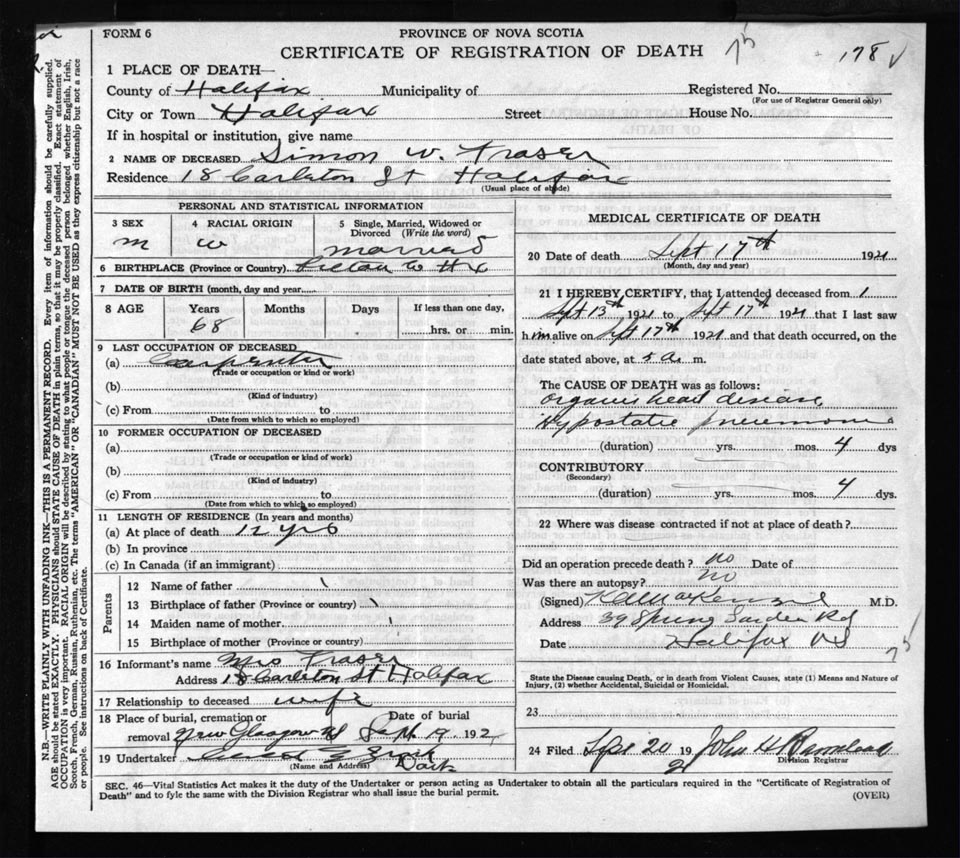 FORM 6
PROVINCE OF NOVA SCOTIA
CERTIFICATE OF REGISTRATION OF DEATH
75
178
1 PLACE OF DEATH—
County of Halifax Municipality of Registered No.
(For use of Registrar General only)
City or Town Halifax Street House No.
If in hospital or institution, give name
2 NAME OF DECEASED Simon W. Fraser
Residence 18 Carleton St Halifax
(Usual place of abode)
PERSONAL AND STATISTICAL INFORMATION
3 SEX
m
4 RACIAL ORIGIN
w
5 Single, Married, Widowed or Divorced (Write the word)
married
6 BIRTHPLACE (Province or Country) Pictou Co
7 DATE OF BIRTH (month, day and year)
8 AGE Years Months Days If less than one day,
68 hrs. or min.
9 LAST OCCUPATION OF DECEASED
(a) Carpenter
(Trade or occupation or kind or work)
(b)
(Kind of industry)
(c) From to
(Date from which to which so employed)
10 FORMER OCCUPATION OF DECEASED
(a)
(Trade or occupation or kind of work)
(b)
(Kind of industry)
(c) From to
(Date from which to which so employed)
11 LENGTH OF RESIDENCE (In years and months)
(a) At place of death 12 yrs
(b) In province
(c) In Canada (if an immigrant)
Parents
12 Name of father
13 Birthplace of father (Province or country)
14 Maiden name of mother
15 Birthplace of mother (Province or country)
16 Informant's name Mrs Fraser
Address 18 Carleton St Halifax
17 Relationship to deceased wife
18 Place of burial, cremation or Date of burial
removal New Glasgow NS Sept 19 192
19 Undertaker
(Name and Address)
Dart
MEDICAL CERTIFICATE OF DEATH
20 Date of death Sept 17th 1921
(Month, day and year)
21 I HEREBY CERTIFY, that I attended deceased from
Sept 13th 1921 to Sept 17th 1921 that I last saw
him alive on Sept 17th 1921 and that death occurred, on the
date stated above, at 5 a. m.
The CAUSE OF DEATH was as follows:
organic heart disease
Hypostatic pneumonia
(duration) yrs. mos. 4 dys
CONTRIBUTORY
(Secondary)
(duration) yrs. mos. 4 dys.
22 Where was disease contracted if not at place of death?
Did an operation precede death? no Date of
Was there an autopsy? no
(Signed) MacKenzie M.D.
Address 39 Spring Garden Rd
Date Halifax NS
75
State the Disease causing Death, or in death from Violent Causes, state (1) Means and Nature of
Injury, (2) whether Accidental, Suicidal or Homicidal.
23
24 Filed Sept 20 1921 John H
Division Registrar
SEC. 46—Vital Statistics Act makes it the duty of the Undertaker or person acting as Undertaker to obtain all the particulars required in the "Certificate of Registration of
Death" and to fyle the same with the Division Registrar who shall issue the burial permit.
(OVER)
N.B.—WRITE PLAINLY WITH UNFADING INK—THIS IS A PERMANENT RECORD. Every item of information should be carefully supplied.
AGE should be stated EXACTLY. PHYSICIANS should STATE CAUSE OF DEATH in plain terms, so that it may be properly classified. Exact statement of
OCCUPATION is very important. RACIAL ORIGIN will be described by stating to what people or tongue the deceased person belonged whether English, Irish,
Scotch, French, German, Russian, Ruthenian, etc. The terms "AMERICAN" OR "CANADIAN" MUST NOT BE USED as they express citizenship but not a race
or people. See instructions on back of Certificate.